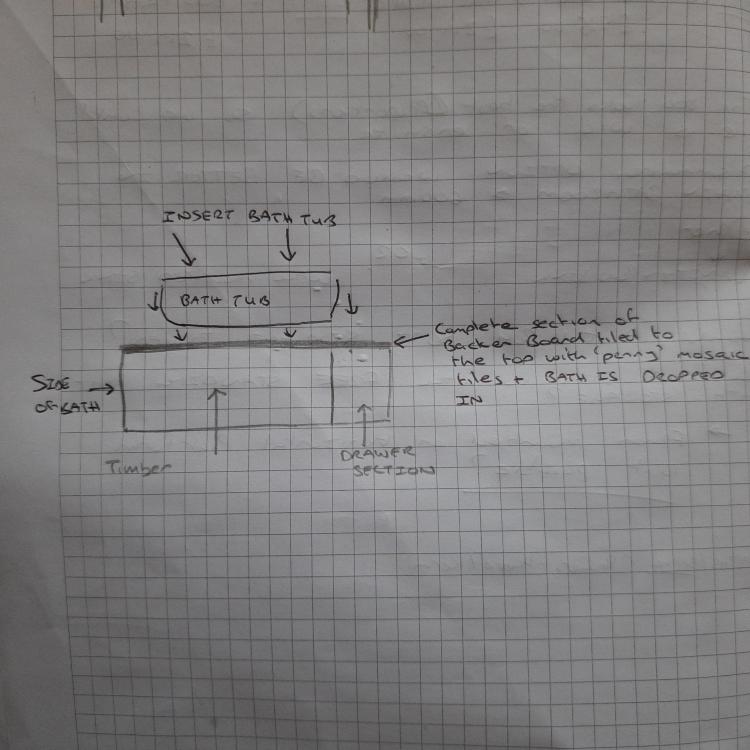 INSERT BATH TUB
BATH TUB
Complete section of
Backer Board tiled to
the top with 'penny' mosaic
tiles + BATH IS DROPPED
IN
SIDE
OF BATH
Timber
DRAWER
SECTION